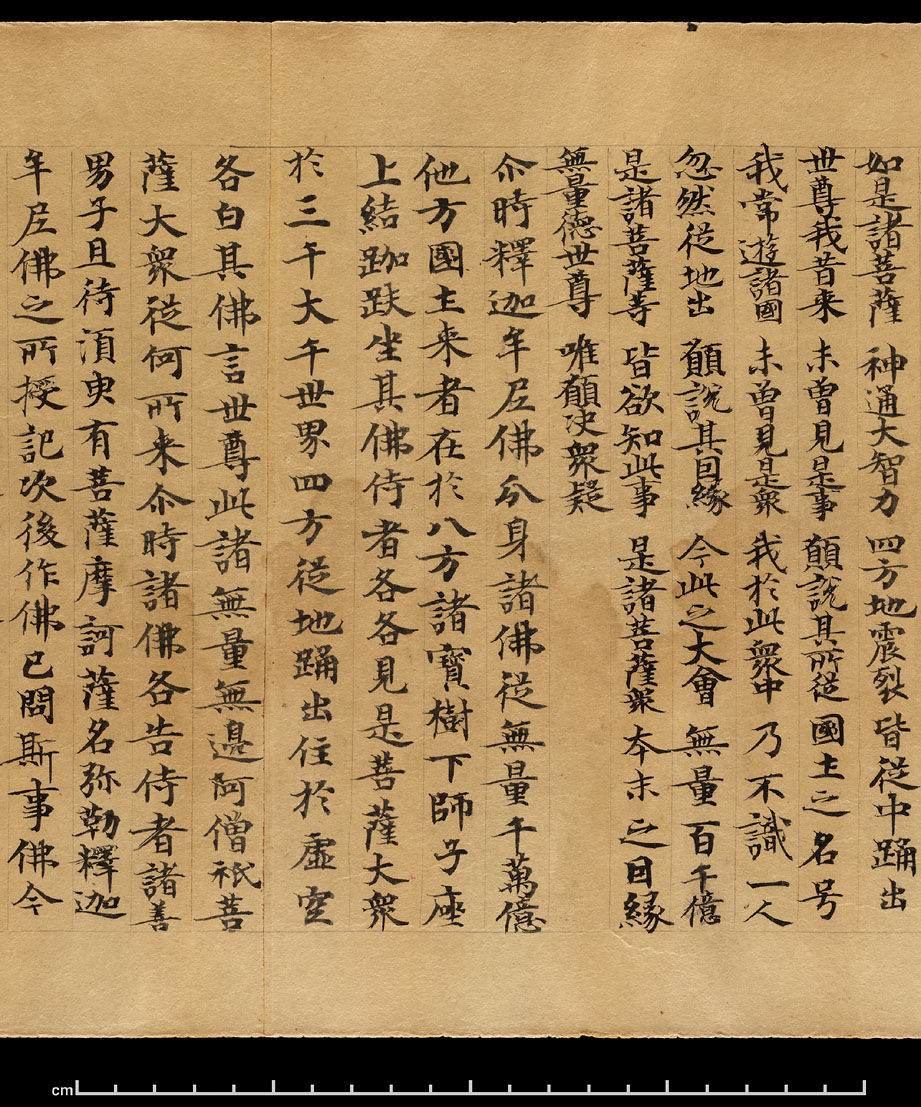 如是諸菩薩 神通大智力 四方地震裂 皆從中踊出
世尊我昔来 未曾見是事 願說其所從 國土之名号
我常遊諸國 未曾見是衆 我於此衆中 乃不識一人
忽然從地出 願說其因緣 今此之大會 無量百千億
是諸菩薩等 皆欲知此事 是諸菩薩衆 本末之因緣
無量德世尊 唯願決衆疑
尒時釋迦牟尼佛分身諸佛從無量千萬億
他方國土来者在於八方諸寶樹下師子座
上結跏趺坐其佛侍者各各見是菩薩大衆
於三千大千世界四方從地踊出住於虛空
各白其佛言世尊此諸無量無邊阿僧祇菩
薩大衆從何所来尒時諸佛各告侍者諸善
男子且待須臾有菩薩摩訶薩名弥勒釋迦
牟尼佛之所授記次後作佛已問斯事佛今
cm